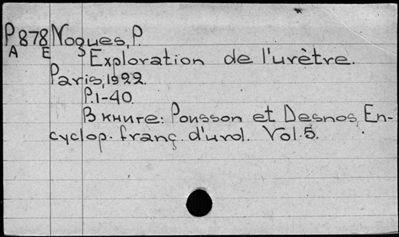 P878 Nogues, P.
A E S Exploration de l'urètre.
Paris, 1922.
P.1-40.
В книге: Pousson et Desnos, En-
cyclop. franç. d'urol. Vol. 5.